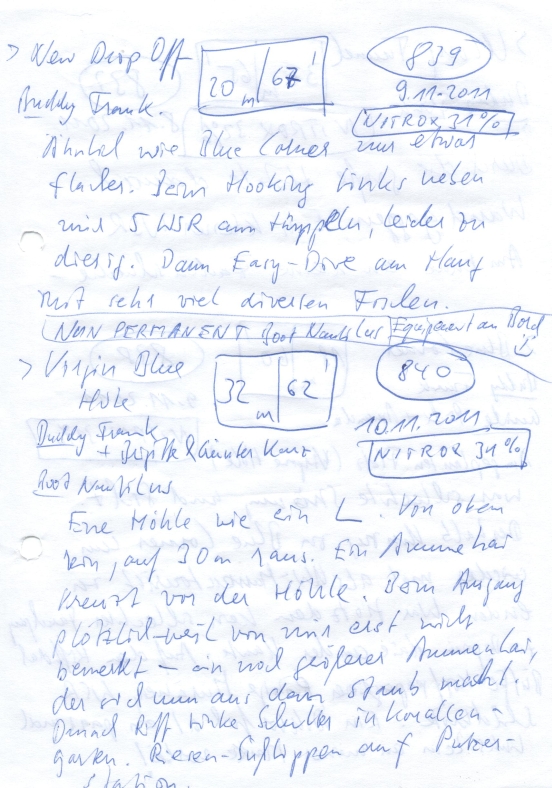 > New Drop Off 20 m 67' 839
9.11.2011
Buddy Frank. NITROX 31%
Ähnlich wie Blue Corner nur etwas
flacher. Beim Hooking links neben
mir 5 WSR am tümpeln, leider zu
diesig. Dann Easy-Dive am Hang
mit sehr viel diversen Fischen.
NUN PERMANENT Boot Nautilus Equipment an Bord
> Virgin Blue 32 m 62' 840
Hole
10.11.2011
Buddy Frank NITROX 31%
+ Brigitte & Günter
Boot Nautilus
Eine Höhle wie ein L. Von oben
rein, auf 30m raus. Ein Ammenhai
kreuzt vor der Höhle. Beim Ausgang
plötzlich - weil von mir erst nicht
bemerkt - ein noch größerer Ammenhai,
der sich nun aus dem Staub macht.
Danach Riff linke Schulter in Korallen-
garten. Riesen-Süßlippen auf Putzer-
station.